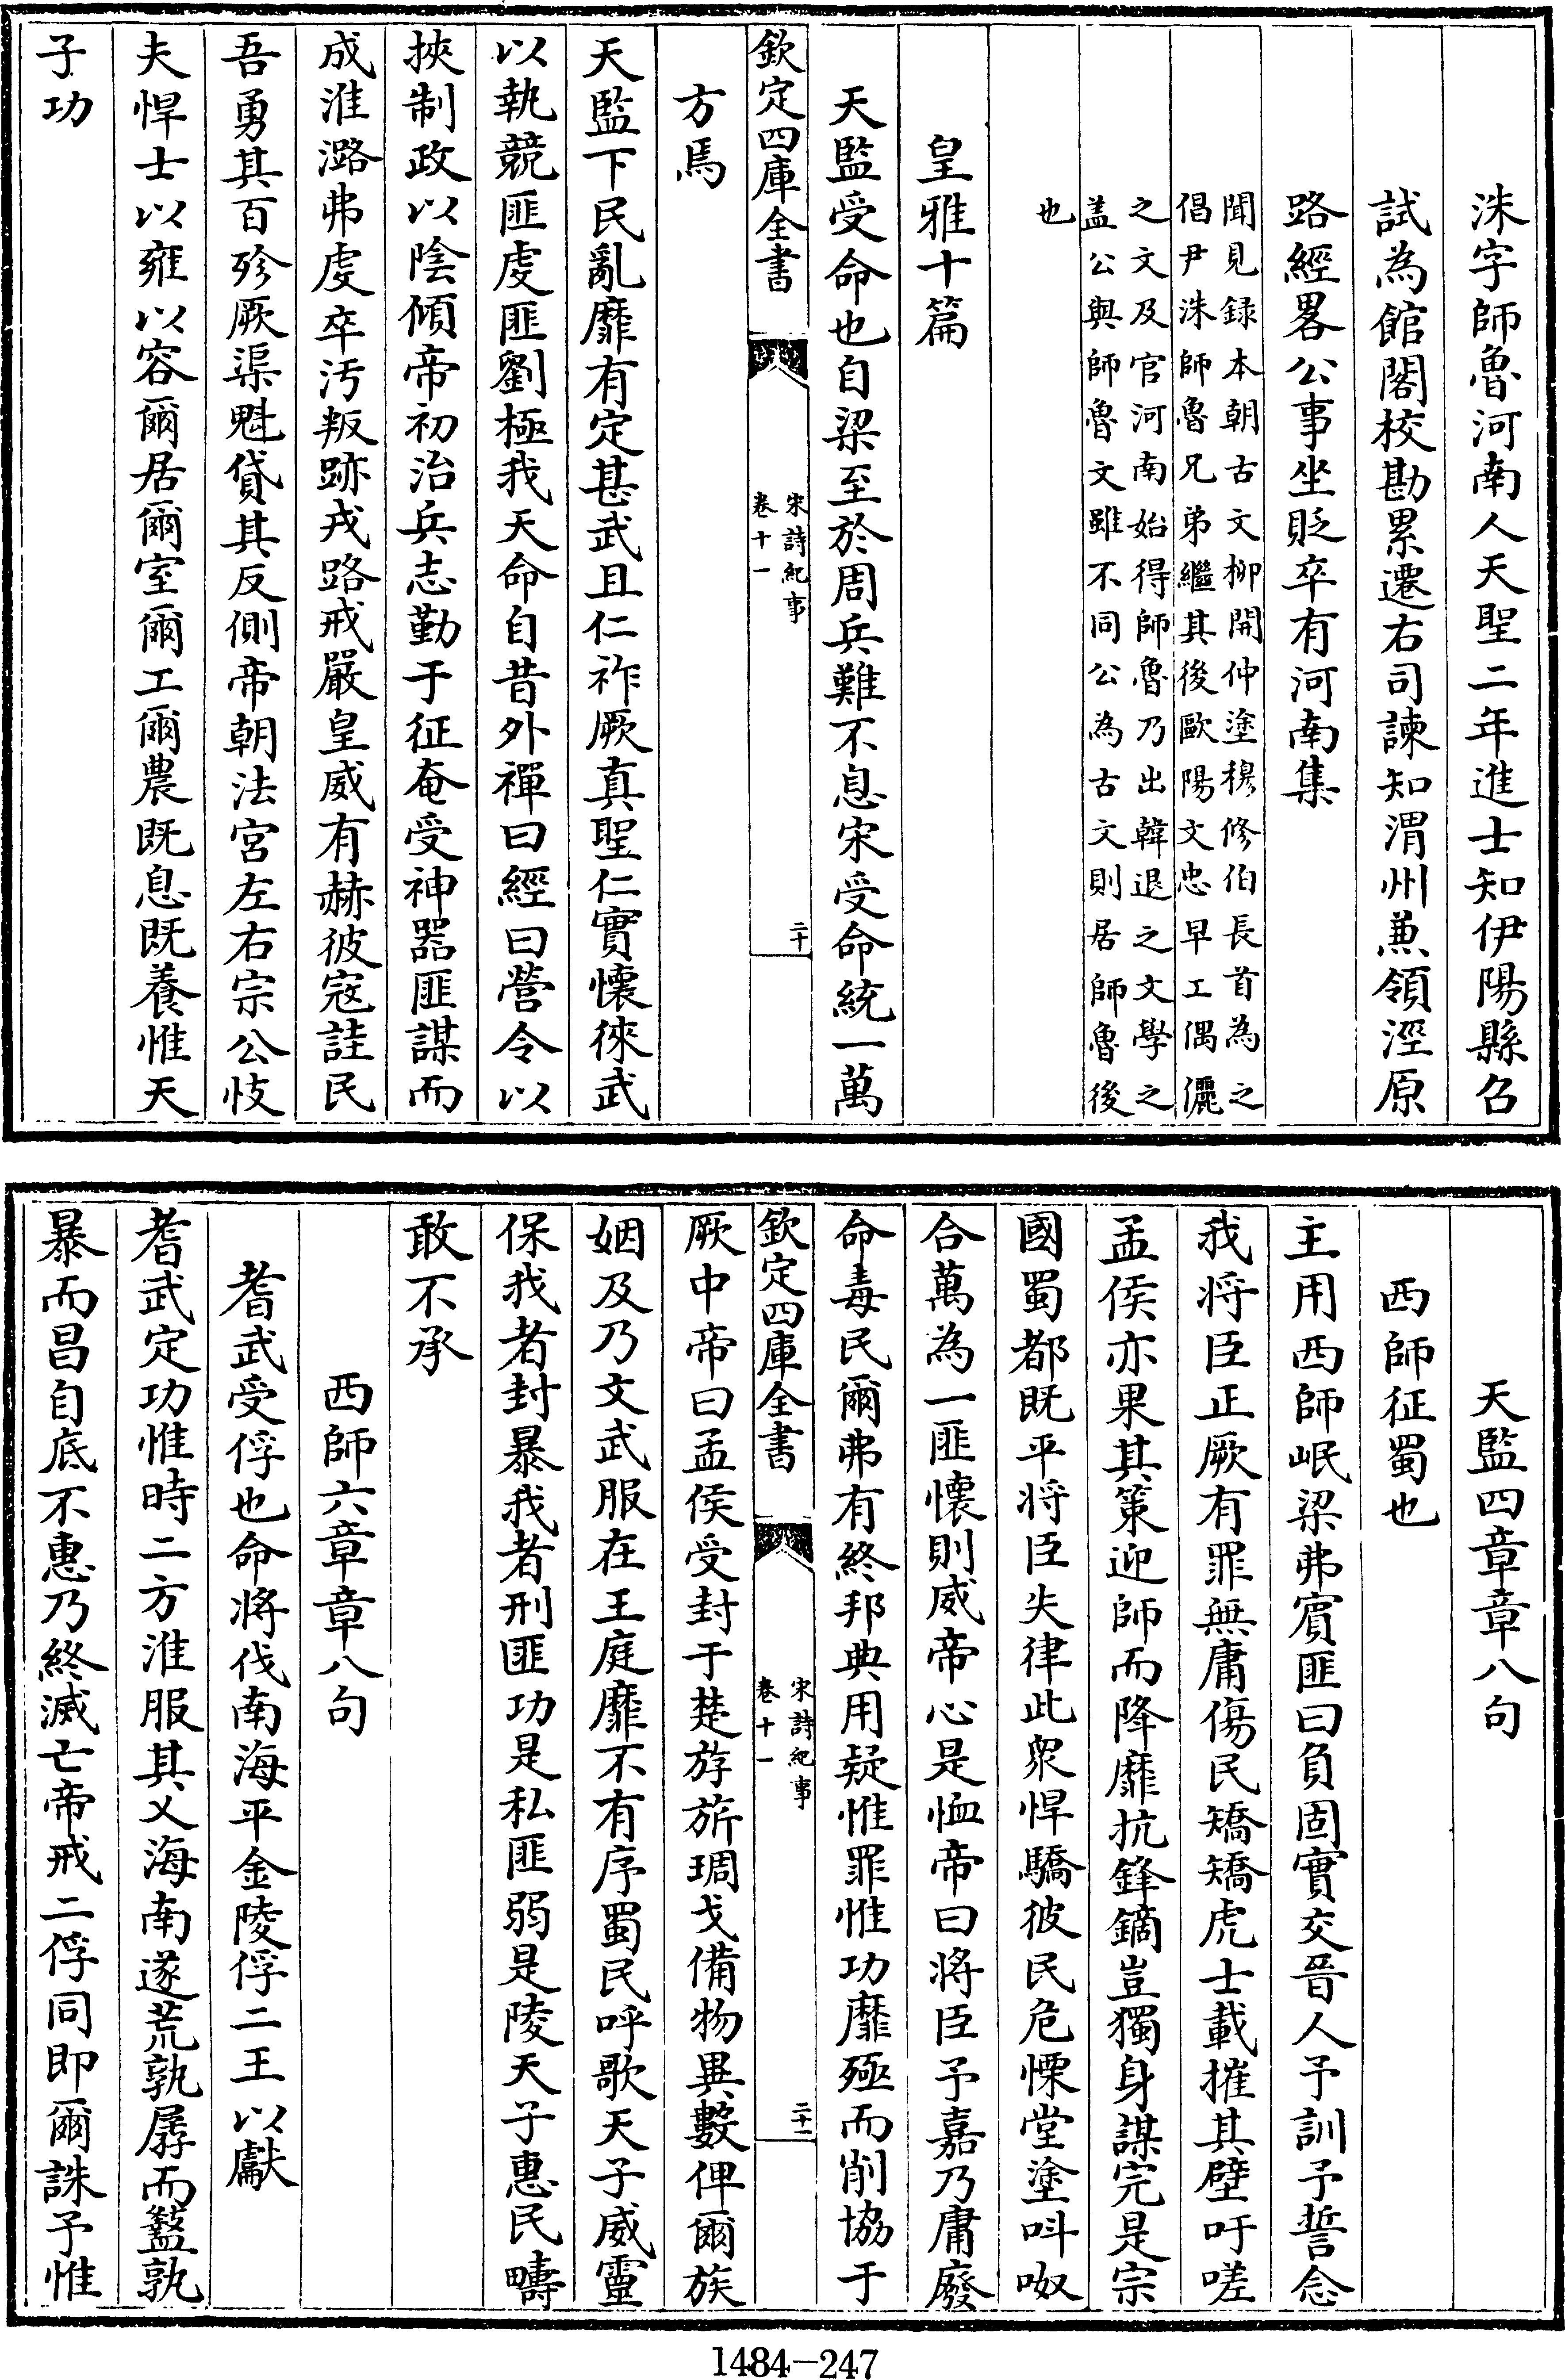 洙字師魯河南人天聖二年進士知伊陽縣召
試為館閣校勘累遷右司諫知渭州兼領涇原
路經畧公事坐貶卒有河南集
聞見録本朝古文柳開仲塗穆修伯長首為之
倡尹洙師魯兄弟繼其後歐陽文忠早工偶儷
之文及官河南始得師魯乃出韓退之文學之
盖公與師魯文雖不同公為古文則居師魯後
也
皇雅十篇
天監受命也自梁至於周兵難不息宋受命統一萬
欽定四庫全書
宋詩紀事
卷十一
二十
方焉
天監下民亂靡有定甚武且仁祚厥真聖仁實懷徠武
以執競匪虔匪劉極我天命自昔外禪曰經曰營令以
挾制政以陰傾帝初治兵志勤于征奄受神器匪謀而
成淮潞弗虔卒汚叛跡戎路戒嚴皇威有赫彼寇詿民
吾勇其百殄厥渠魁貸其反側帝朝法宮左右宗公忮
夫悍士以雍以容爾居爾室爾工爾農既息既養惟天
子功
天監四章章八句
西師征蜀也
主用西師岷梁弗賓匪曰負固實交晉人予訓予誓念
我将臣正厥有罪無庸傷民矯矯虎士載摧其壁吁嗟
孟侯亦果其策迎師而降靡抗鋒鏑豈獨身謀完是宗
國蜀都既平将臣失律此衆悍驕彼民危慄堂塗呌呶
合萬為一匪懷則威帝心是恤帝曰將臣予嘉乃庸廢
命毒民爾弗有終邦典用疑惟罪惟功靡殛而削協于
欽定四庫全書
宋詩紀事
卷十一
二十一
厥中帝曰孟侯受封于楚斿旂琱戈備物異數俾爾族
姻及乃文武服在王庭靡不有序蜀民呼歌天子威靈
保我者封暴我者刑匪功是私匪弱是陵天子惠民疇
敢不承
西師六章章八句
耆武受俘也命將伐南海平金陵俘二王以獻
耆武定功惟時二方淮服其乂海南遂荒孰孱而籃孰
暴而昌自底不惠乃終滅亡帝戒二俘同即爾誅予惟
1484-247